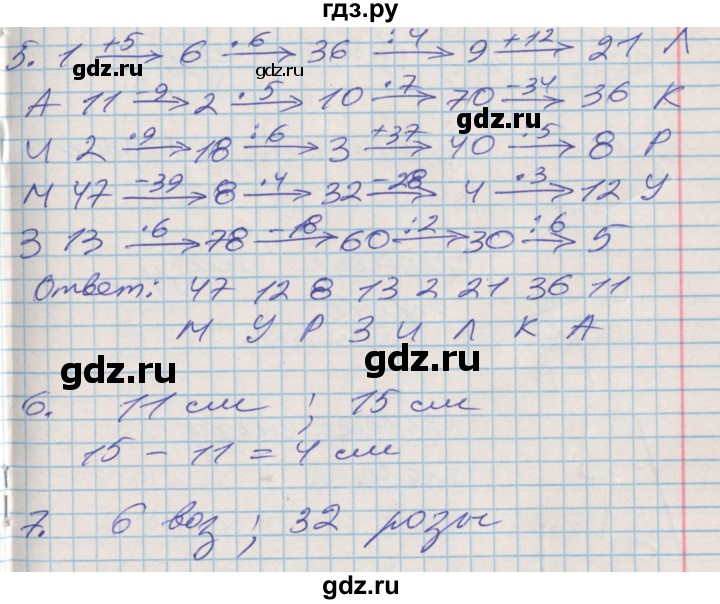 гдз.ру
5. 1 +5→ 6 ·6→ 36 :4→ 9 +12→ 21 Л
gdz.ru gdz.ru
А 11 -9→ 2 ·5→ 10 ·7→ 70 -34→ 36 К
gdz.ru
И 2 ·9→ 18 :6→ 3 +37→ 40 :5→ 8 Р
М 47 -39→ 8 ·4→ 32 -28→ 4 ·3→ 12 У
З 13 ·6→ 78 -18→ 60 :2→ 30 :6→ 5
Ответ: 47 12 8 13 2 21 36 11
М У Р З И Л К А
gdz.ru gdz.ru
6. 11 см ; 15 см
15 - 11 = 4 см
7. 6 ваз ; 32 розы
gdz.ru gdz.ru
gdz.ru